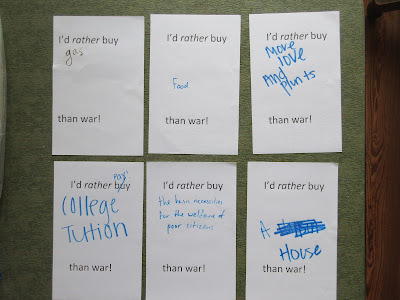 I'd rather buy
gas
than war!
I'd rather buy
Food
than war!
I'd rather buy
More
love
And
plants
than war!
pay
I'd rather buy
College
Tuition
than war!
I'd rather buy
the basic necessities
for the welfare of
poor citizens
than war!
I'd rather buy
A
House
than war!